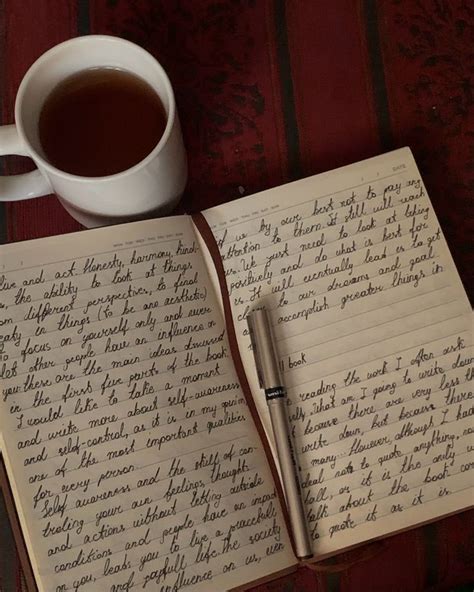 live and act. Honesty, harmony, kind-
the ability to look at things
different perspectives, to find
in things (to be are aesthetic)
to focus on yourself only and
let other people have an influence on
you these are the main ideas discussed
in the first five parts of the book.
I would like to take a moment
and write more about self-awareness
and self-control, as it is in my
one of the most important qualities
for every person.
Self awareness and the of con-
troling your own feelings, thoughts
and actions without letting
conditions and people have an impact
on you, leads you to live a peacefull
and joyfull life. the society
influence on us, even
DATE
if we by our best not to pay any
attention to them. It still will
us. We just need to look at
positively and do what is best for
It will eventually lead us to get
to our dreams and goal
accomplish greater things in
book
reading the work I often ask
what am I going to write
because there are very less
write down, but because there
many... However, although I
not to quote anything,
as it is the only
talk about the book
to quote it as it is.